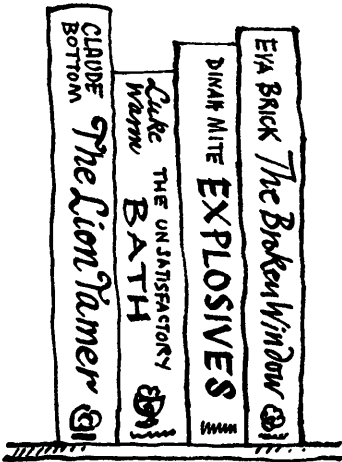 CLAUDE
BOTTOM
The Lion Tamer
Luke
Warm
THE UNSATISFACTORY
BATH
DINAH MITE EXPLOSIVES
EVA BRICK The Broken Window